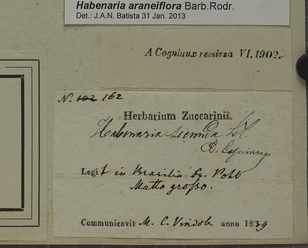 Habenaria araneiflora Barb.Rodr.
Det.: J.A.N. Batista 31 Jan. 2013
A Cogniaux remissa VI. 1902.
N. 102 162
Herbarium Zuccarinii.
Habenaria secunda Ll.
Legit in Brasilia Dr. Pohl
Matto grosso.
Communicavit M. C. Vindob. anno 1839